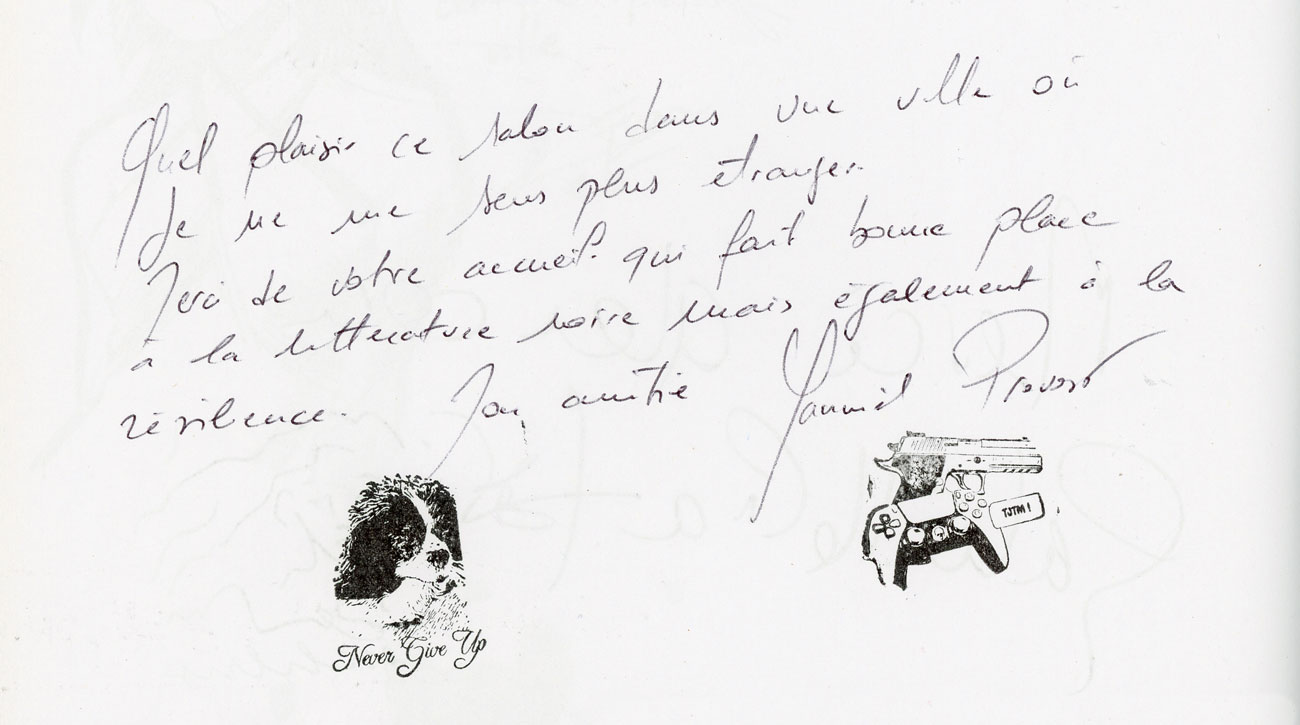 Quel plaisir ce salon dans une ville où
je ne me sens plus étranger.
Merci de votre accueil qui fait bonne place
à la littérature noire mais également à la
résilience. Mon amitié Yannick Provost
TJTM !
Never Give Up